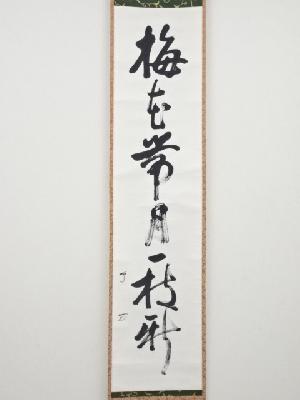 梅花帯月一枝新